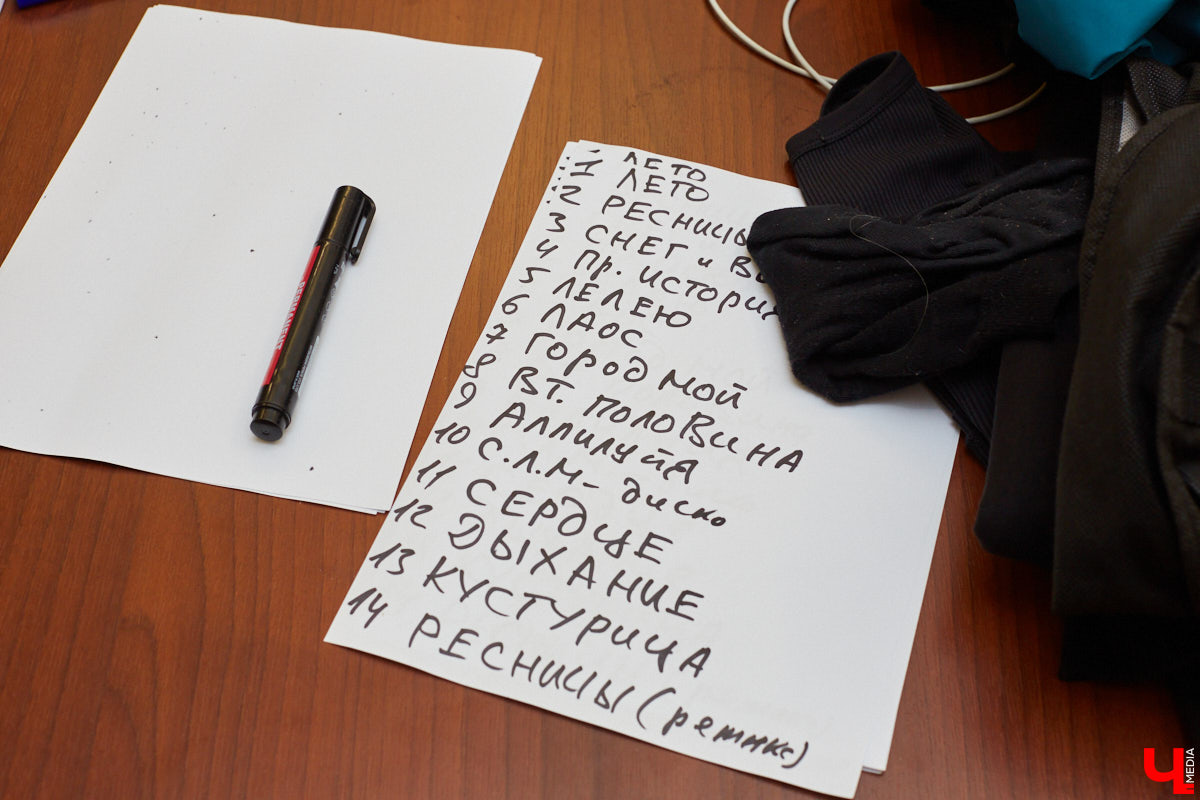 PERMANENT
ЛЕТО
1 ЛЕТО
2 РЕСНИЦЫ
3 СНЕГ и
4 ПР. ИСТОРИЯ
5 ЛЕЛЕЮ
6 ЛАОС
7 ГОРОД МОЙ
8 ВТ. ПОЛОВИНА
9 АЛЛИЛУЙЯ
10 С.Л.М- диско
11 СЕРДЦЕ
12 ДЫХАНИЕ
13 КУСТУРИЦА
14 РЕСНИЦЫ (ремикс)
Ч MEDIA